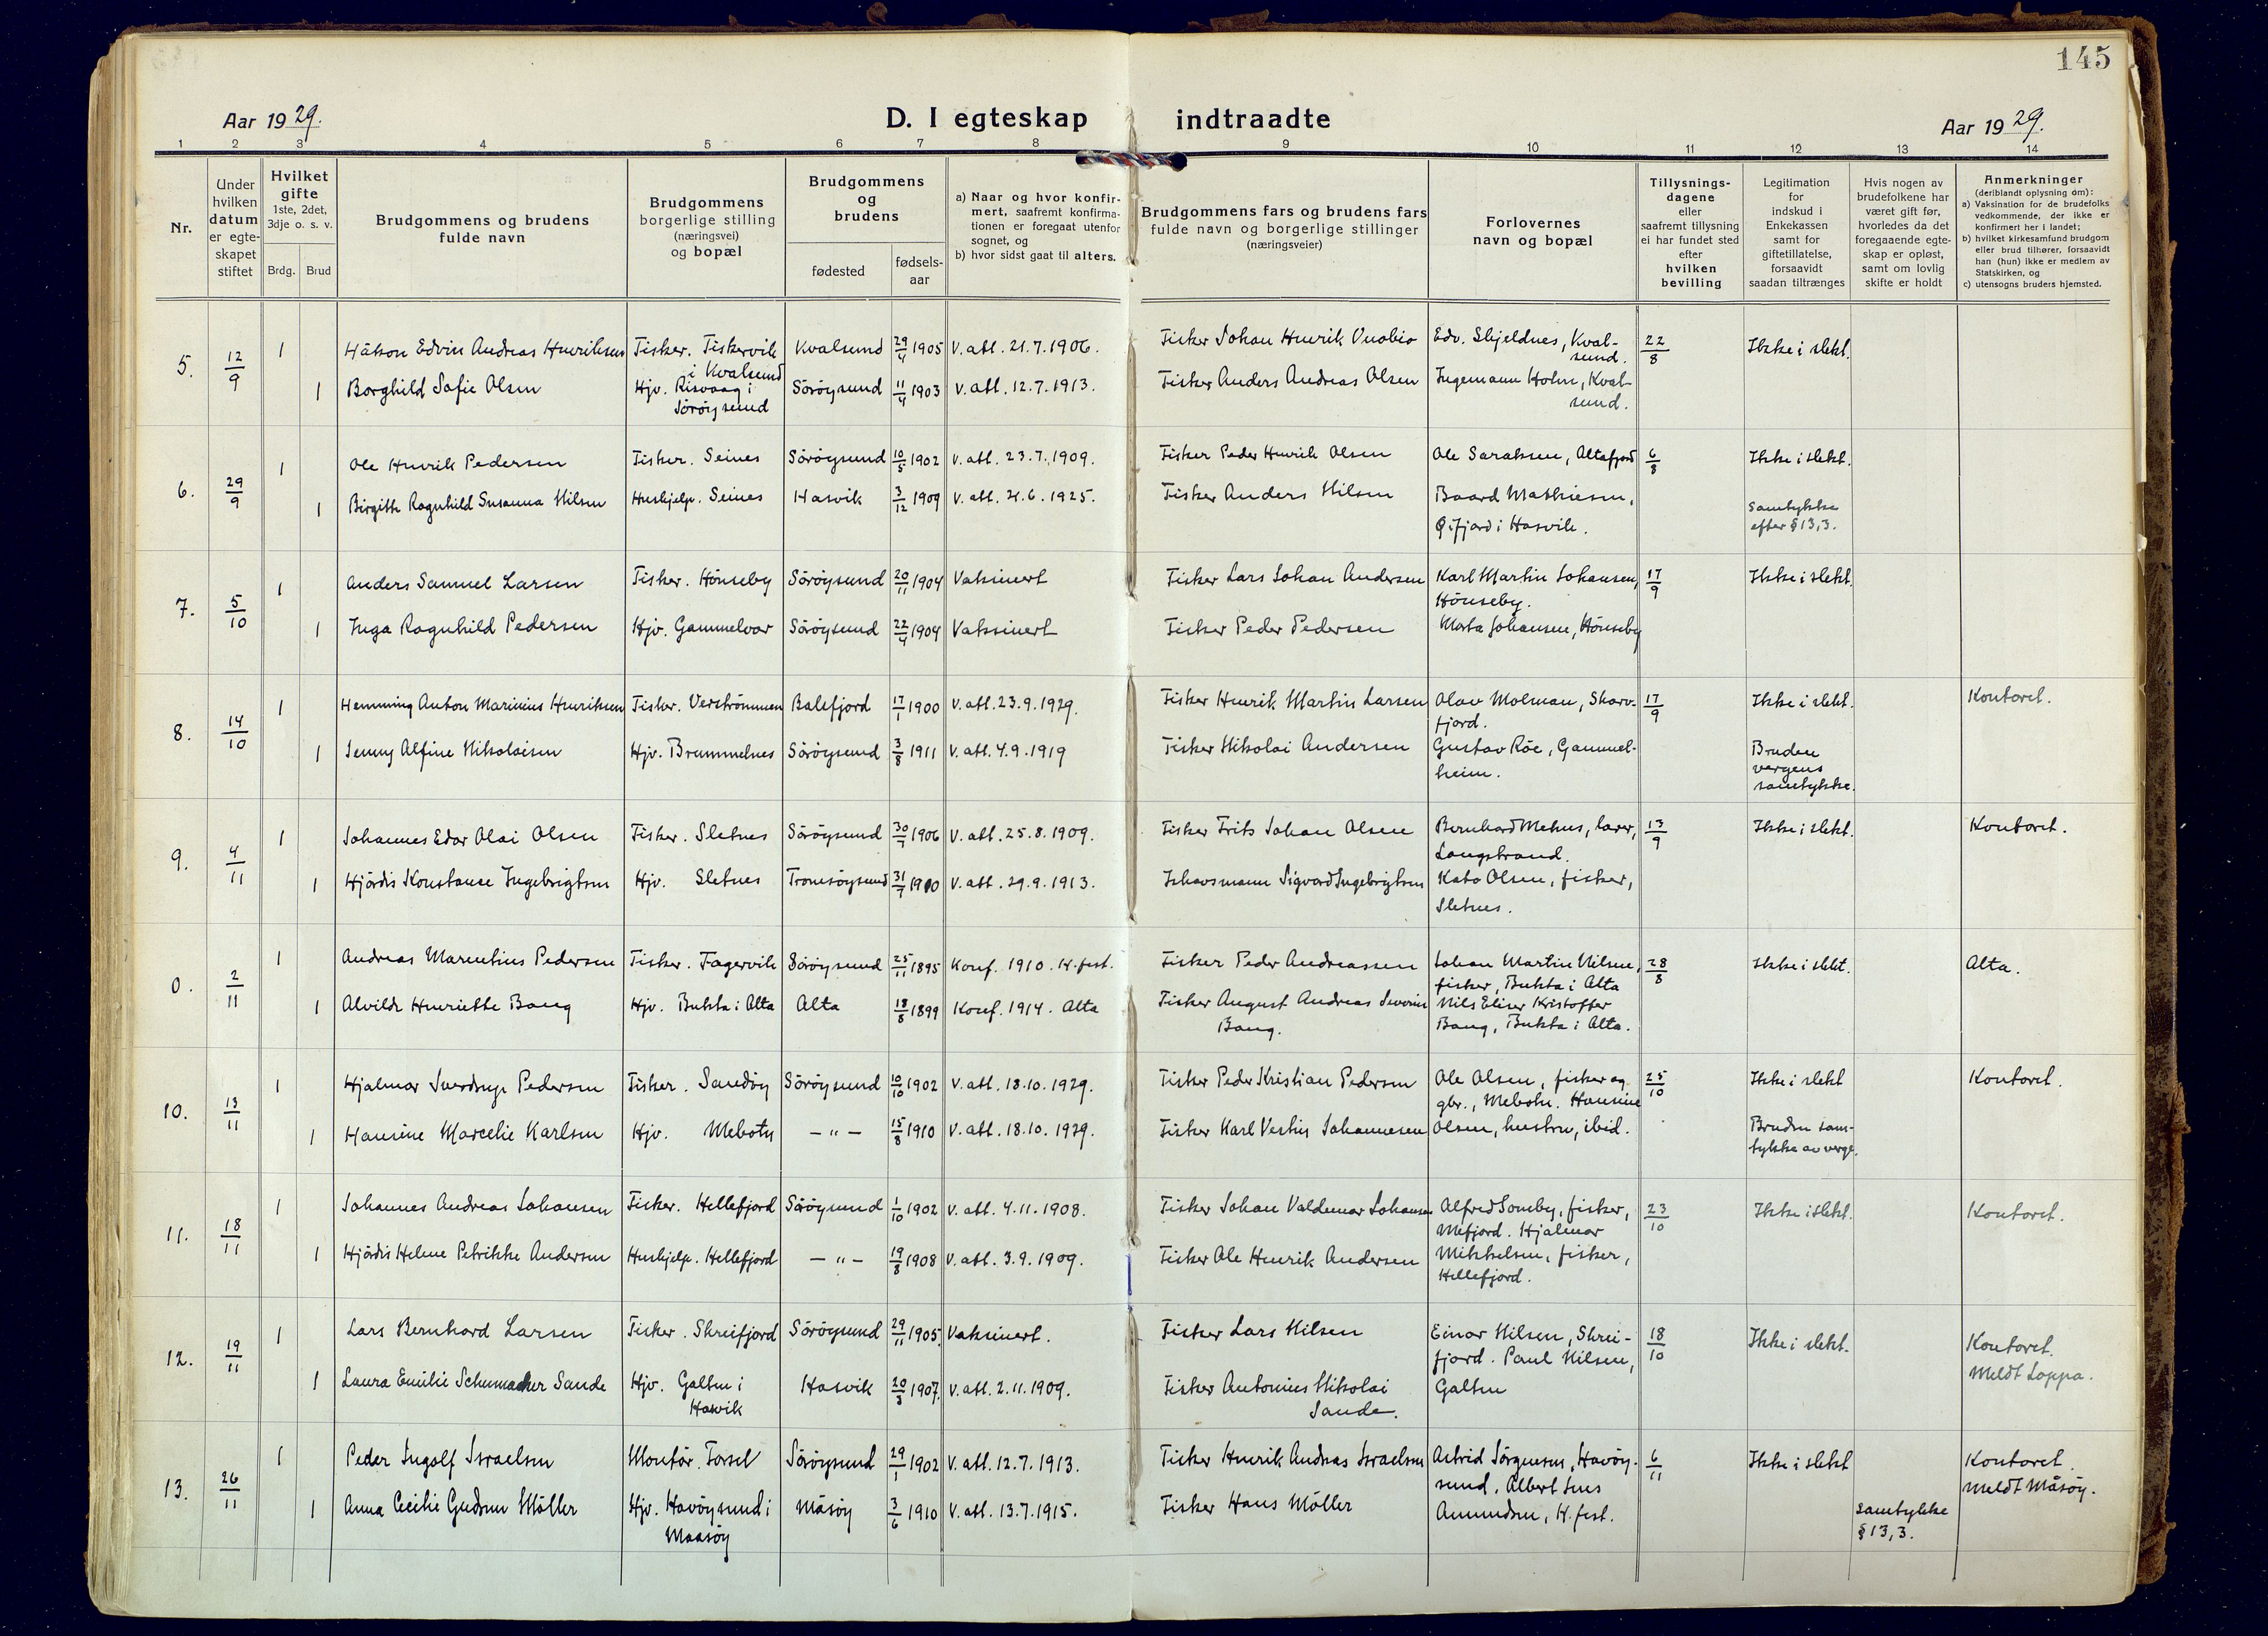 145
Aar 1929.
D. I egteskap indtraadte
Aar 1929.
1 2 3 4 5 6 7 8 9 10 11 12 13 14
Nr.
Under hvilken datum er egteskapet stiftet
Hvilket gifte 1ste, 2det, 3dje o. s. v.
Brdg. Brud
Brudgommens og brudens fulde navn
Brudgommens borgerlige stilling (næringsvei) og bopæl
Brudgommens og brudens
fødested fødsels-aar
a) Naar og hvor konfirmert, saafremt konfirmationen er foregaat utenfor sognet, og
b) hvor sidst gaat til alters.
Brudgommens fars og brudens fars fulde navn og borgerlige stillinger (næringsveier)
Forlovernes navn og bopæl
Tillysningsdagene eller saafremt tillysning ei har fundet sted efter hvilken bevilling
Legitimation for indskud i Enkekassen samt for giftetillatelse, forsaavidt saadan tiltrænges
Hvis nogen av brudefolkene har været gift før, hvorledes da det foregaaende egteskap er opløst, samt om lovlig skifte er holdt
Anmerkninger (deriblandt oplysning om):
a) Vaksination for de brudefolks vedkommende, der ikke er konfirmert her i landet;
b) hvilket kirkesamfund brudgom eller brud tilhører, forsaavidt han (hun) ikke er medlem av Statskirken, og
c) utensogns bruders hjemsted.
5. 12/9 1 Håkon Edvin Andreas Henriksen Fisker. Fiskervik i Kvalsund Kvalsund 29/4 1905 V. att. 21.7.1906. Fisker Johan Henrik Vuobio Edv. Skjeldnes, Kvalsund. 22/8 Ikke i slekt.
1 Borghild Sofie Olsen Hjv. Risvaag i Söröysund Söröysund 11/4 1903 V. att. 12.7.1913. Fisker Anders Andreas Olsen Ingemann Holm, Kvalsund.
6. 29/9 1 Ole Henrik Pedersen Fisker. Seines Söröysund 10/5 1902 V. att. 23.7.1909. Fisker Peder Henrik Olsen Ole Saraksen, Altafjord 6/8 Ikke i slekt.
1 Birgitte Ragnhild Susanna Nilsen Hushjelp. Seines Hasvik 3/12 1909 V. att. 21.6.1925. Fisker Anders Nilsen Baard Mathiesen, Øifjord i Hasvik. Samtykke efter § 13,3.
7. 5/10 1 Anders Samuel Larsen Fisker. Hönseby Söröysund 20/11 1904 Vaksinert Fisker Lars Johan Andersen Karl Martin Johansen, Hönseby. 17/9 Ikke i slekt.
1 Inga Ragnhild Pedersen Hjv. Gammelvær Söröysund 22/4 1904 Vaksinert Fisker Peder Pedersen Marta Johansen, Hönseby
8. 14/10 1 Hemming Anton Marinius Henriksen Fisker. Verströmmen Balsfjord 17/1 1900 V. att. 23.9.1929. Fisker Henrik Martin Larsen Olav Molman, Skarvfjord. 17/9 Ikke i slekt. Kontoret.
1 Jenny Alfine Nikolaisen Hjv. Brummelnes Söröysund 3/8 1911 V. att. 4.9.1919 Fisker Nikolai Andersen Gustav Röe, Gammelheim. Bruden vergens samtykke.
9. 4/11 1 Johannes Edor Olai Olsen Fisker. Sletnes Söröysund 30/7 1906 V. att. 25.8.1909. Fisker Frits Johan Olsen Bernhard Mehus, lærer, Langstrand. 13/9 Ikke i slekt. Kontoret.
1 Hjördis Konstanse Ingebrigtsen Hjv. Sletnes Tromsöysund 31/7 1910 V. att. 29.9.1913. Ishavsmann Sigvard Ingebrigtsen Kato Olsen, fisker, Sletnes.
0. 2/11 1 Andreas Marentius Pedersen Fisker. Fagervik Söröysund 25/11 1895 Konf. 1910. H.fest. Fisker Peder Andreassen Johan Martin Nilsen, fisker, Bukta i Alta 28/8 Ikke i slekt. Alta.
1 Alvilde Henriette Bang Hjv. Bukta i Alta Alta 18/8 1899 Konf. 1914. Alta Fisker August Andreas Severin Bang. Nils Eliser Kristoffer Bang, Bukta i Alta.
10. 13/11 1 Hjalmar Sverdrup Pedersen Fisker. Sandöy Söröysund 10/10 1902 V. att. 18.10.1929. Fisker Peder Kristian Pedersen Ole Olsen, fisker og gbr., Mebotn. Hansine 25/10 Ikke i slekt Kontoret.
1 Hansine Marcelie Karlsen Hjv. Mebotn — " — 15/8 1910 V. att. 18.10.1929. Fisker Karl Vestin Johannesen Olsen, hustru, ibid. Bruden samtykke av verge.
11. 18/11 1 Johannes Andreas Johansen Fisker. Hellefjord Söröysund 1/10 1902 V. att. 4.11.1908. Fisker Johan Valdemar Johansen Alfred Somby, fisker, Mefjord. Hjalmar 23/10 Ikke i slekt. Kontoret.
1 Hjördis Helene Petrikke Andersen Hushjelp. Hellefjord — " — 19/8 1908 V. att. 3.9.1909. Fisker Ole Henrik Andersen Mikkelsen, fisker, Hellefjord.
12. 19/11 1 Lars Bernhard Larsen Fisker. Skreifjord Söröysund 29/11 1905. Vaksinert. Fisker Lars Nilsen Einar Nilsen, Skreifjord. Paul Nilsen, 18/10 Ikke i slekt. Kontoret.
1 Laura Emilie Schumacher Sande Hjv. Galten i Hasvik Hasvik 20/3 1907. V. att. 2.11.1909. Fisker Antonius Nikolai Sande. Galten Meldt Loppa.
13. 26/11 1 Peder Ingolf Israelsen Montör. Forsøl Söröysund 29/1 1902 V. att. 12.7.1913. Fisker Henrik Andreas Israelsen Astrid Jörgensen, Havöysund. Albert Jens 6/11 Ikke i slekt Kontoret. Meldt Måsöy.
1 Anna Cecilie Gudrun Möller Hjv. Havöysund i Maasöy Måsöy 3/6 1910 V. att. 13.7.1915. Fisker Hans Möller Amundsen, H.fest. Samtykke § 13,3.